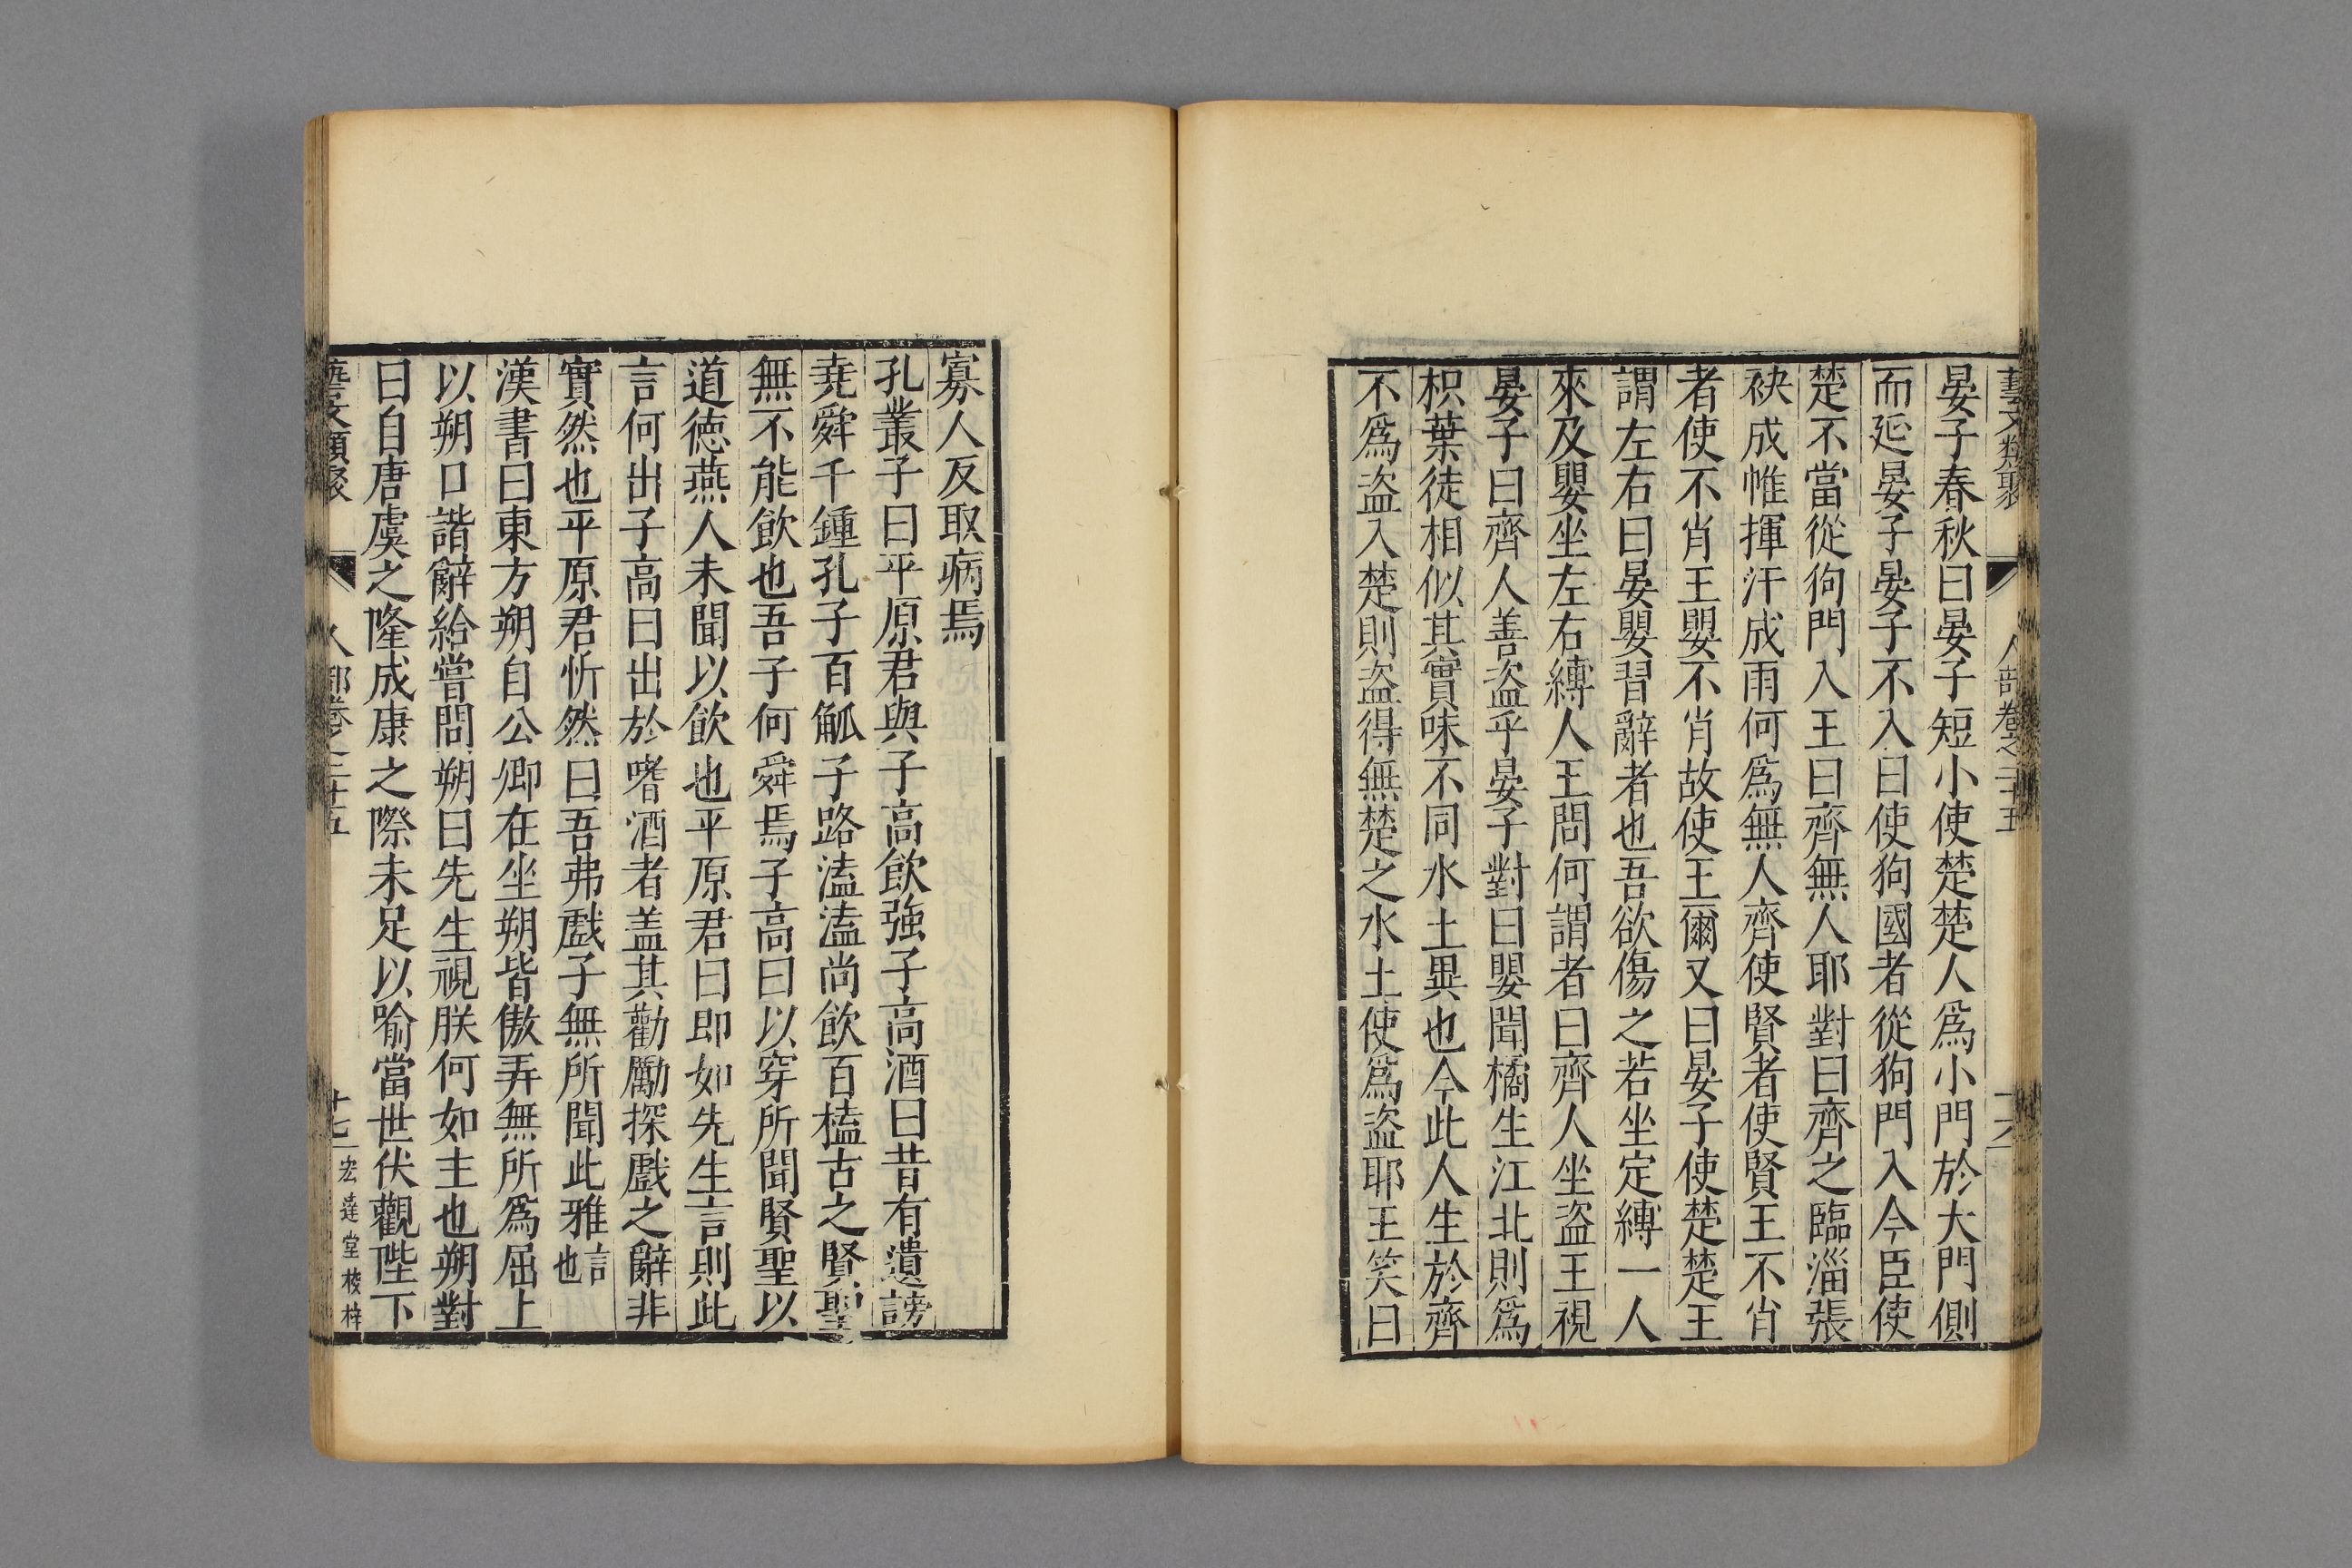 藝文類聚 人部卷之二十五 十六
晏子春秋曰晏子短小使楚楚人爲小門於大門側
而延晏子晏子不入曰使狗國者從狗門入今臣使
楚不當從狗門入王曰齊無人耶對曰齊之臨淄張
袂成帷揮汗成雨何爲無人齊使賢者使賢王不肖
者使不肖王嬰不肖故使王爾又曰晏子使楚楚王
謂左右曰晏嬰習辭者也吾欲傷之若坐定縛一人
來及嬰坐左右縛人王問何謂者曰齊人坐盜王視
晏子曰齊人善盜乎晏子對曰嬰聞橘生江北則爲
枳葉徒相似其實味不同水土異也今此人生於齊
不爲盜入楚則盜得無楚之水土使爲盜耶王笑曰
寡人反取病焉
孔叢子曰平原君與子高飲強子高酒曰昔有遺諺
堯舜千鍾孔子百觚子路溘溘尚飲百榼古之賢聖
無不能飲也吾子何舜焉子高曰以穿所聞賢聖以
道德燕人未聞以飲也平原君曰即如先生言則此
言何出子高曰出於嗜酒者盖其勸勵探戲之辭非
實然也平原君忻然曰吾弗戲子無所聞此雅言也
漢書曰東方朔自公卿在坐朔皆傲弄無所爲屈上
以朔口諧辭給嘗問朔曰先生視朕何如主也朔對
曰自唐虞之隆成康之際未足以喻當世伏觀陛下
藝文類聚 人部卷之二十五 十七 宏達堂校梓